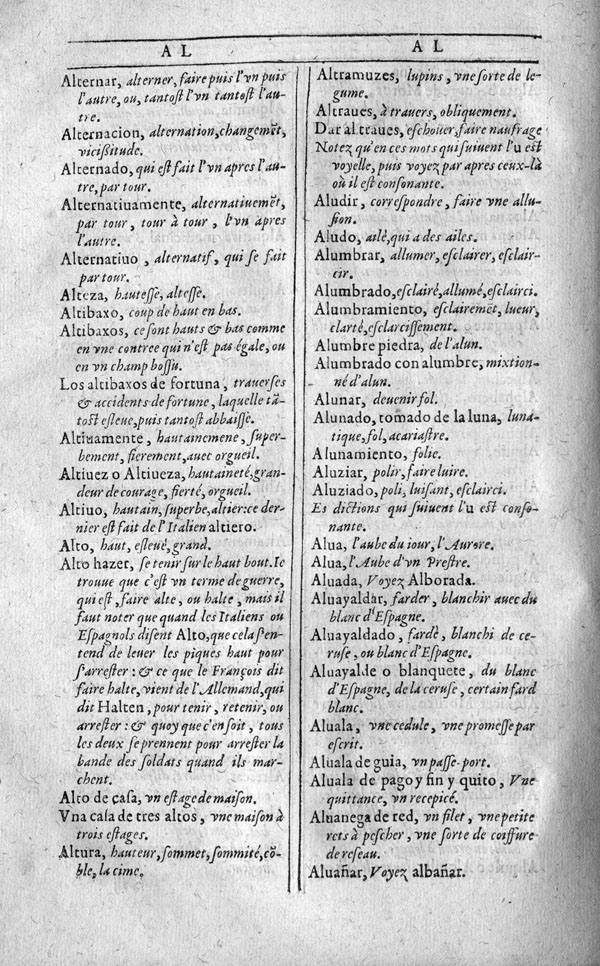 A L
Alternar, alterner, faire puis l'vn puis
l'autre, ou, tantoſt l'vn tantoſt l'au-
tre.
Alternacion, alternation, changemẽt,
viciſsitude.
Alternado, qui eſt fait l'vn apres l'au-
tre, par tour.
Alternatiuamente, alternatiuemẽt,
par tour, tour à tour, l'vn apres
l'autre.
Alternatiuo, alternatif, qui ſe fait
par tour.
Alteza, hauteſſe, alteſſe.
Altibaxo, coup de haut en bas.
Altibaxos, ce ſont hauts & bas comme
en vne contree qui n'eſt pas égale, ou
en vn champ boſſu.
Los altibaxos de fortuna, trauerſes
& accidents de fortune, laquelle tã-
toſt eſleue, puis tantoſt abbaiſſe.
Altiuamente, hautainemene, ſuper-
bement, fierement, auec orgueil.
Altiuez o Altiueza, hautaineté, gran-
deur de courage, fierté, orgueil.
Altiuo, hautain, ſuperbe, altier: ce der-
nier eſt fait de l'Italien altiero.
Alto, haut, eſleué, grand.
Alto hazer, ſe tenir ſur le haut bout. Ie
trouue que c'eſt vn terme de guerre,
qui eſt, faire alte, ou halte, mais il
faut noter que quand les Italiens ou
Eſpagnols diſent Alto, que cela s'en-
tend de leuer les piques haut pour
s'arreſter: & ce que le François dit
faire halte, vient de l'Allemand, qui
dit Halten, pour tenir, retenir, ou
arreſter: & quoy que c'en ſoit, tous
les deux ſe prennent pour arreſter la
bande des ſoldats quand ils mar-
chent.
Alto de caſa, vn eſtage de maiſon.
Vna caſa de tres altos, vne maiſon à
trois eſtages.
Altura, hauteur, ſommet, ſommité, cõ-
ble, la cime.
A L
Altramuzes, lupins, vne ſorte de le-
gume.
Altraues, à trauers, obliquement.
Dar al traues, eſchouer, faire naufrage
Notez qu'en ces mots qui ſuiuent l'u eſt
voyelle, puis voyez par apres ceux-là
où il eſt conſonante.
Aludir, correſpondre, faire vne allu-
ſion.
Aludo, ailé, qui a des ailes.
Alumbrar, allumer, eſclairer, eſclair-
cir.
Alumbrado, eſclairé, allumé, eſclairci.
Alumbramiento, eſclairemẽt, lueur,
clarté, eſclarciſſement.
Alumbre piedra, de l'alun.
Alumbrado con alumbre, mixtion-
né d'alun.
Alunar, deuenir fol.
Alunado, tomado de la luna, luna-
tique, fol, acariaſtre.
Alunamiento, folie.
Aluziar, polir, faire luire.
Aluziado, poli, luiſant, eſclairci.
Es dictions qui ſuiuent l'u eſt conſo-
nante.
Alua, l'aube du iour, l'Aurore.
Alua, l'Aube d'vn Preſtre.
Aluada, Voyez Alborada.
Aluayaldar, farder, blanchir auec du
blanc d'Eſpagne.
Aluayaldado, fardé, blanchi de ce-
ruſe, ou blanc d'Eſpagne.
Aluayalde o blanquete, du blanc
d'Eſpagne, de la ceruſe, certain fard
blanc.
Aluala, vne cedule, vne promeſſe par
eſcrit.
Aluala de guia, vn paſſe-port.
Aluala de pago y fin y quito, Vne
quittance, vn recepicé.
Aluanega de red, vn filet, vne petite
rets à peſcher, vne ſorte de coiffure
de reſeau.
Aluañar, Voyez albañar.